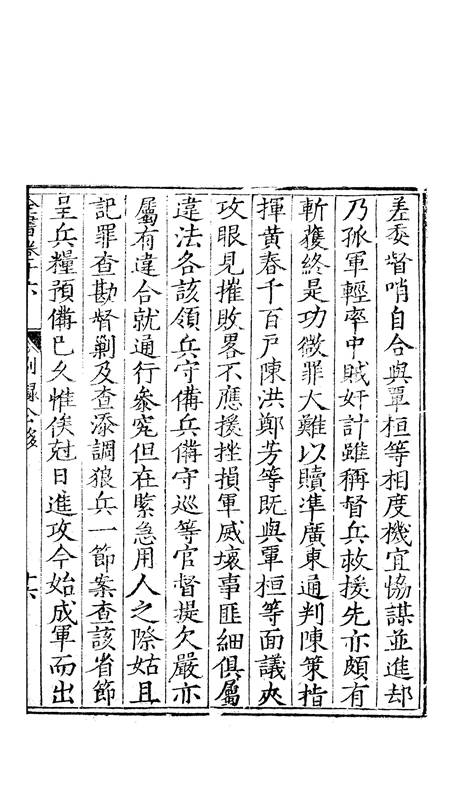 差委督哨自合與覃桓等相度機宜恊謀並進却
乃孤軍輕率中賊奸計雖稱督兵救援先亦頗有
斬獲終是功微罪大難以贖準廣東通判陳策指
揮黄春千百戸陳洪鄭芳等既與覃桓等面議夾
攻眼見摧敗畧不應援挫損軍威壞事匪細俱屬
違法各該領兵守備兵備守巡等官督提欠嚴亦
屬有違合就通行叅究但在緊急用人之際姑且
記罪查勘督剿及查添調狼兵一節案查該省節
呈兵糧預備已久惟俟尅日進攻今始成軍而出
全書卷十六
別錄
十六